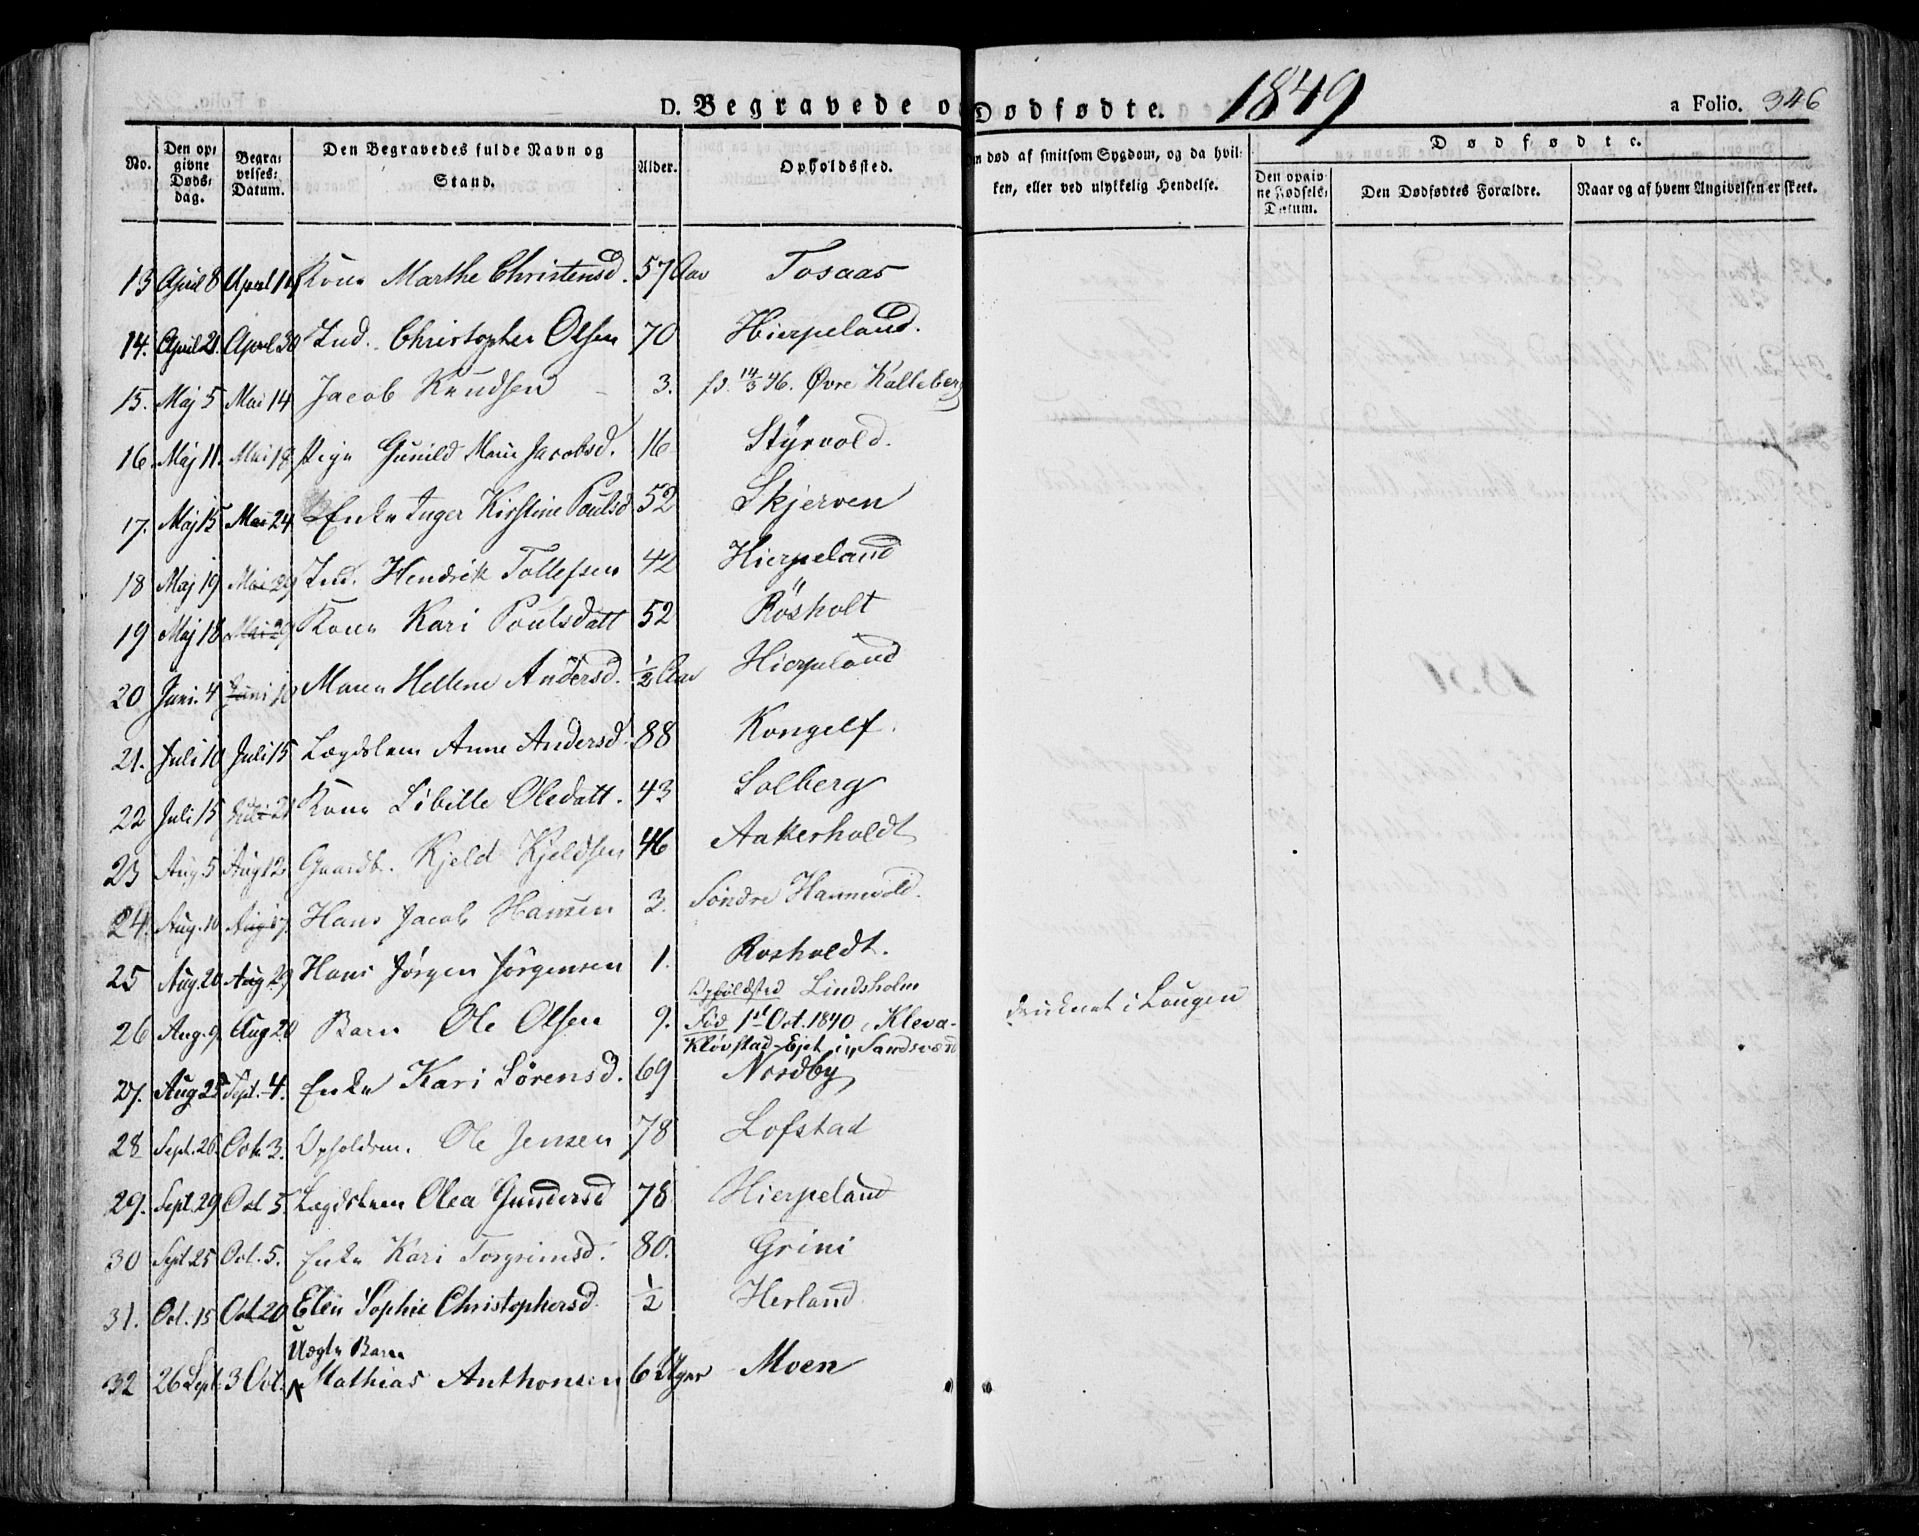 D. Begravede o Dødfødte. 1849 a Folio. 346
No. Den opgivne Dødsdag. Begravelses-Datum. Den Begravedes fulde Navn og Stand. Alder. Opholdssted. Om død af smitsom Sygdom, og da hvilken, eller ved ulykkelig Hendelse. Dødfødte.
Den opgivne Fødsels-Datum. Den Dødfødtes Forældre. Naar og af hvem Angivelsen er skeet.
13 April 8 April Kone Marthe Christensd. 57 Aar Tosaas
14. April 21. April 30 Ind. Christopher Olsen 70 Hierpeland.
15. Maj 5 Mai 14 Jacob Knudsen 3. fd. 14/3 46. Øvre Kalleberg
16. Maj 11. Mai 18 Pige Gunild Marie Jacobsd. 16 Styrvold.
17. Maj 15 Mai 24 Enke Inger Kirstine Poulsd 52 Skjerven
18 Maj 19 Mai 29 Ind. Hendrik Tollefsen 42 Hierpeland
19 Maj 18 Mai 29 Kone Kari Poulsdatt 52 Rösholt
20 Juni. 4 Juni 10 Maren Hellene Andersd. ½ Aar Hierpeland
21. Juli 10 Juli 15 Lægdslem Anne Andersd. 88 Kongelf.
22 Juli 15 Juli 21 Kone Sibille Olsdatt. 43 Solberg
23 Aug 5 Aug 12 Gaardb. Kjeld Kjeldsen 46 Aakerholdt
24. Aug. 10 Aug 17. Hans Jacob Hansen 3. Söndre Hannevold.
25 Aug 20 Aug 29 Hans Jørgen Jørgensen 1. Rosholdt.
Opholdsted Lindsholm
26 Aug. 9 Aug 20 Barn Ole Olsen 9. Fød 1st Oct. 1840 Kleva- druknet i Laugen
Kløvstad-Ejet i Sandsværd
27. Aug 25 Sept. 4. Enke Kari Sørensd. 69 Nordby
28 Sept. 26. Octr 3. Opholdsm. Ole Jensen 78 Lofstad
29. Sept. 29 Oct. 5 Lægdslem Olea Gundersd 78 Hierpeland
30 Sept 25 Oct. 5. Enke Kari Torgrimsd. 80. Grini
31. Oct. 15 Oct 20 Elen Sophie Christophersd. ½ Herland
Uægte Barn
32 26 Sept. 3 Oct. Mathias Anthonsen 6 Uger Moen